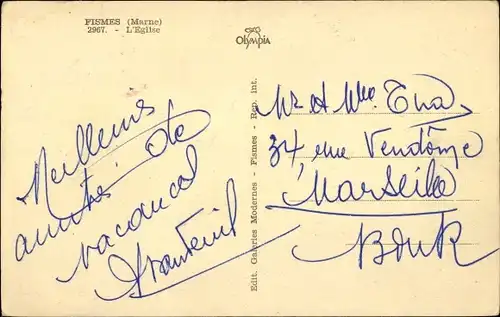 FISMES (Marne)
2967. - L'Eglise
Olympia
Meilleures
amitiés de
vacances
Edit. Galeries Modernes - Fismes - Rep. int.
Mr et Mme
34, rue Vendôme
Marseille